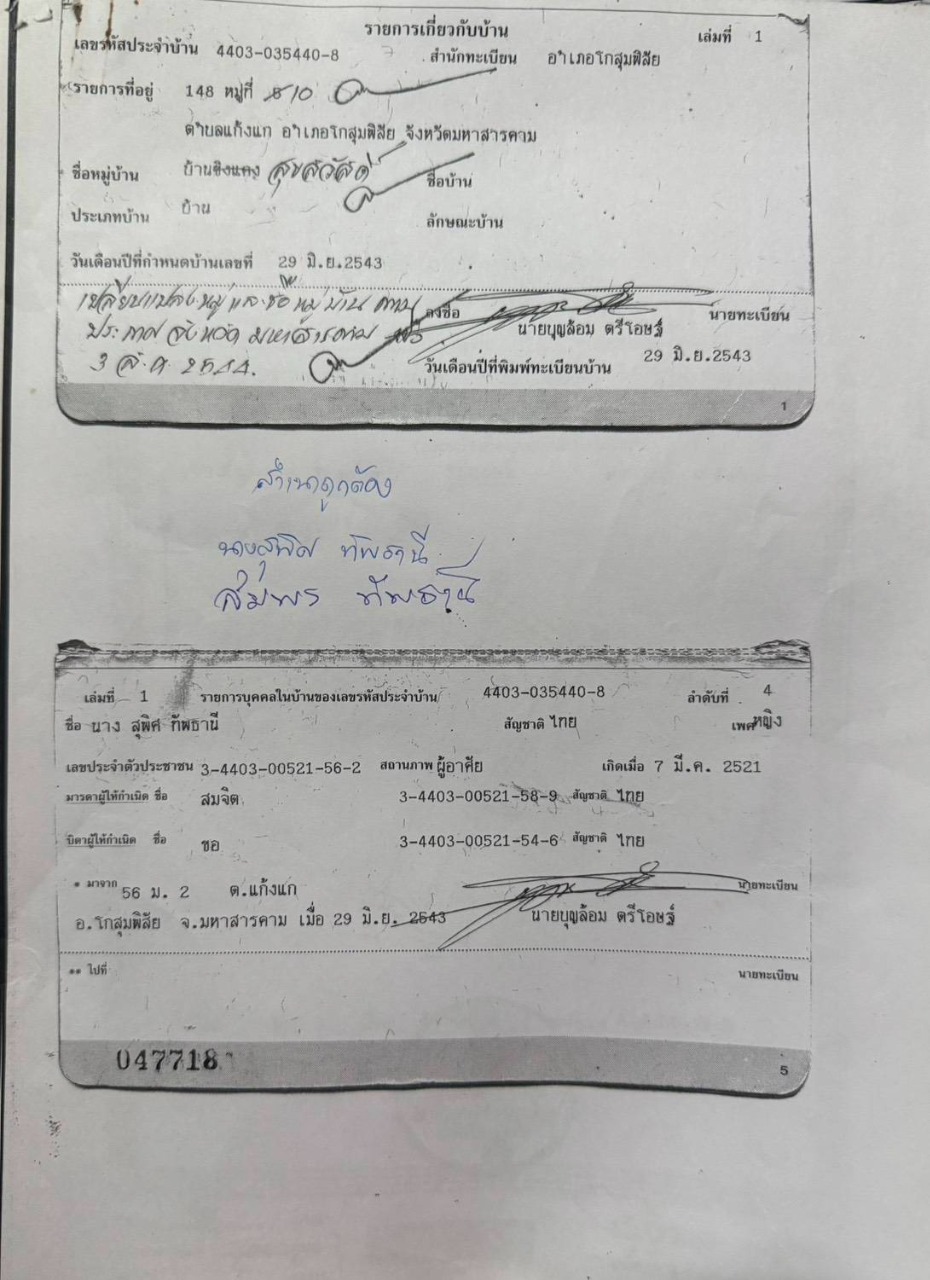 รายการเกี่ยวกับบ้าน เล่มที่ 1
เลขรหัสประจำบ้าน 4403-035440-8 สำนักทะเบียน อำเภอโกสุมพิสัย
รายการที่อยู่ 148 หมู่ที่ 8 10
ตำบลแก้งแก อำเภอโกสุมพิสัย จังหวัดมหาสารคาม
ชื่อหมู่บ้าน บ้านขิงแคง สุขสวัสดิ์ ชื่อบ้าน
ประเภทบ้าน บ้าน ลักษณะบ้าน
วันเดือนปีที่กำหนดบ้านเลขที่ 29 มิ.ย.2543
เปลี่ยนแปลงหมู่และชื่อหมู่บ้าน ตาม ลงชื่อ นายทะเบียน
ประกาศจังหวัดมหาสารคาม นายบุญล้อม ตรีโอษฐ์
3 ส.ค. 2544. วันเดือนปีที่พิมพ์ทะเบียนบ้าน 29 มิ.ย.2543
1
สำเนาถูกต้อง
นางสุพิศ ทัพธานี
สมพร ทัพธานี
เล่มที่ 1 รายการบุคคลในบ้านของเลขรหัสประจำบ้าน 4403-035440-8 ลำดับที่ 4
ชื่อ นาง สุพิศ ทัพธานี สัญชาติ ไทย เพศ หญิง
เลขประจำตัวประชาชน 3-4403-00521-56-2 สถานภาพ ผู้อาศัย เกิดเมื่อ 7 มี.ค. 2521
มารดาผู้ให้กำเนิด ชื่อ สมจิต 3-4403-00521-58-9 สัญชาติ ไทย
บิดาผู้ให้กำเนิด ชื่อ ชอ 3-4403-00521-54-6 สัญชาติ ไทย
* มาจาก 56 ม. 2 ต.แก้งแก นายทะเบียน
อ.โกสุมพิสัย จ.มหาสารคาม เมื่อ 29 มิ.ย. 2543 นายบุญล้อม ตรีโอษฐ์
** ไปที่ นายทะเบียน
047718
5